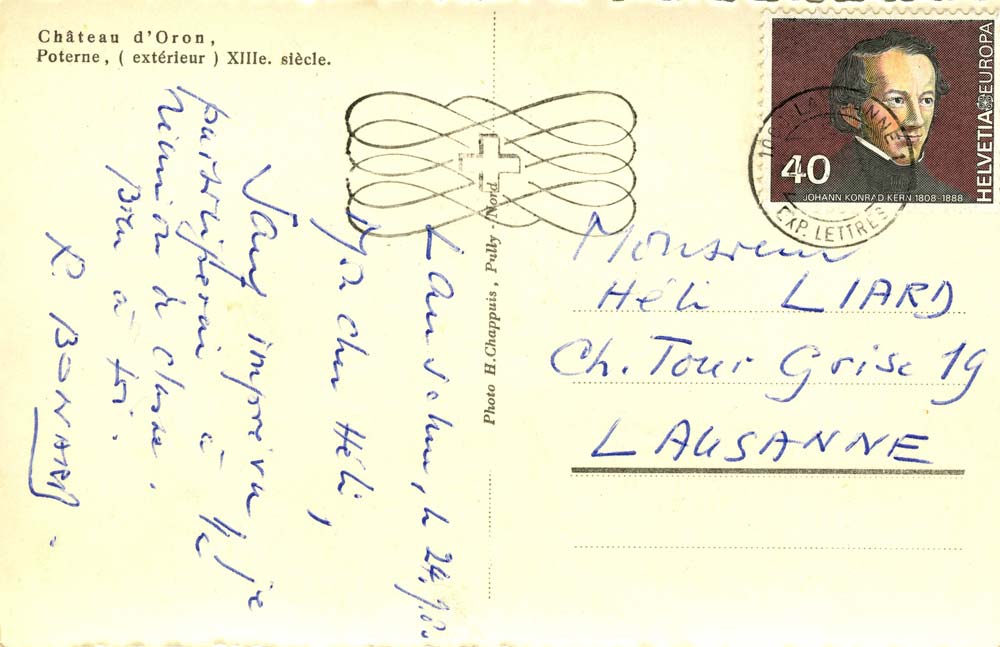 Château d'Oron,
Poterne, ( extérieur ) XIIIe. siècle.
Lausanne, le 24.9.80
Mon cher Héli,
Sauf imprévu, je
participerai à la
réunion de classe.
Bien à toi.
P. BONNARD.
Photo H. Chappuis, Pully - Nord
40
HELVETIA EUROPA
JOHANN KONRAD KERN 1808-1888
LAUSANNE 1
EXP. LETTRES
Monsieur
Héli LIARD
Ch. Tour Grise 19
LAUSANNE